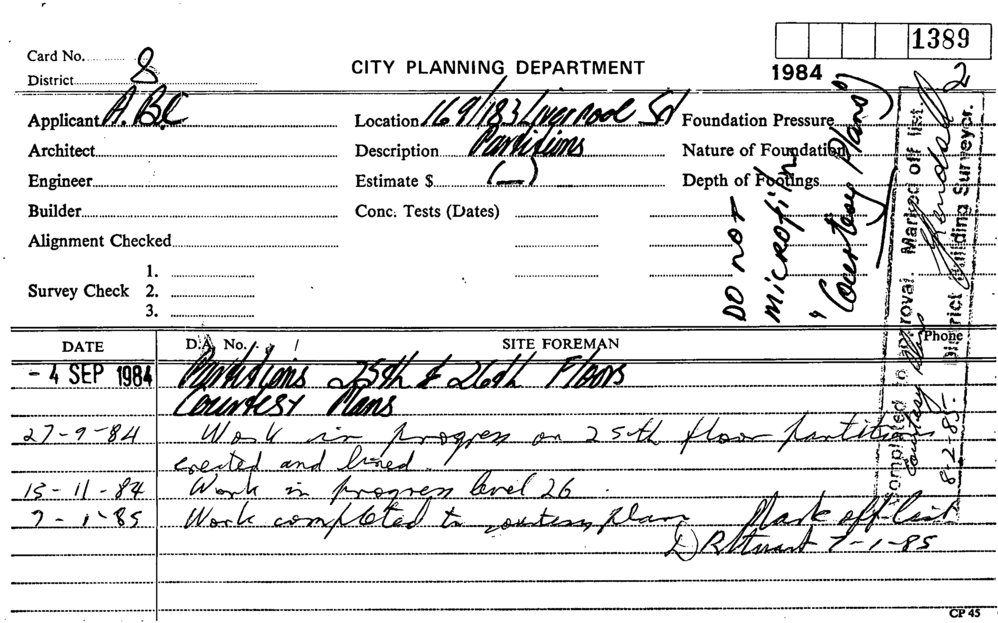 1389
1984
2
Card No.
8
District
CITY PLANNING DEPARTMENT
Applicant A.B.C
Location 169/183 Liverpool St
Foundation Pressure
Architect
Description Partitions
Nature of Foundation
Engineer
Estimate $ (—)
Depth of Footings
Builder
Conc. Tests (Dates)
Alignment Checked
1.
Survey Check 2.
3.
DO NOT
MICROFILM
"Courtesy Plans"
Completed to approval. Marked off list.
Courtesy Plans
8-2-85.
District Building Surveyor.
DATE
D.A. No.
SITE FOREMAN
Phone
- 4 SEP 1984
Partitions 25th & 26th Floors
Courtesy Plans
27-9-84 Work in progress on 25th floor partitions
erected and lined.
15-11-84 Work in progress level 26.
7-1-85 Work completed to courtesy plan Mark off list
D Rstuart 7-1-85
CP 45